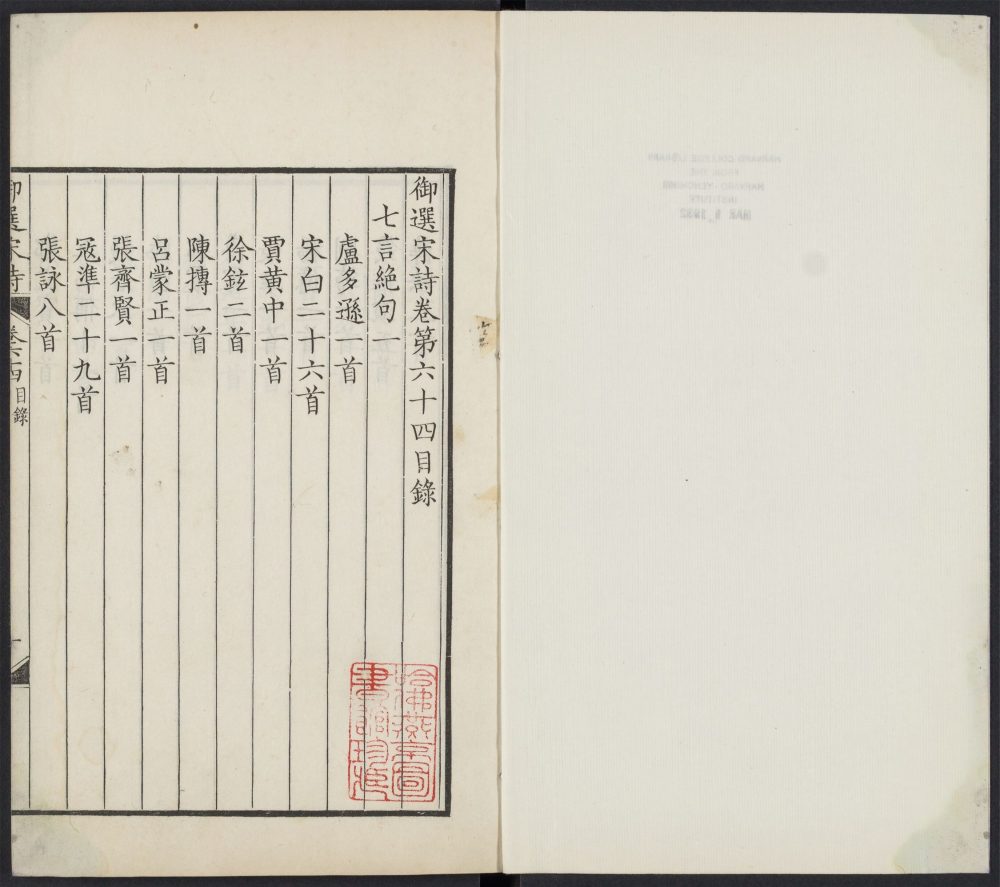 御選宋詩卷第六十四目錄
七言絕句一
盧多遜一首
宋白二十六首
賈黃中一首
徐鉉二首
陳摶一首
呂蒙正一首
張齊賢一首
冦準二十九首
張詠八首
御選宋詩 卷六十四 目錄 一
哈佛燕京圖
書館珍藏
HARVARD COLLEGE LIBRARY
FROM THE
HARVARD-YENCHING
INSTITUTE